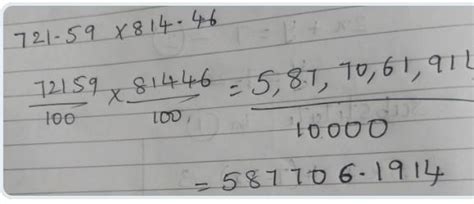 721.59 × 814.46
72159/100 × 81446/100 = 5,87,70,61,911/10000
= 587706.1914